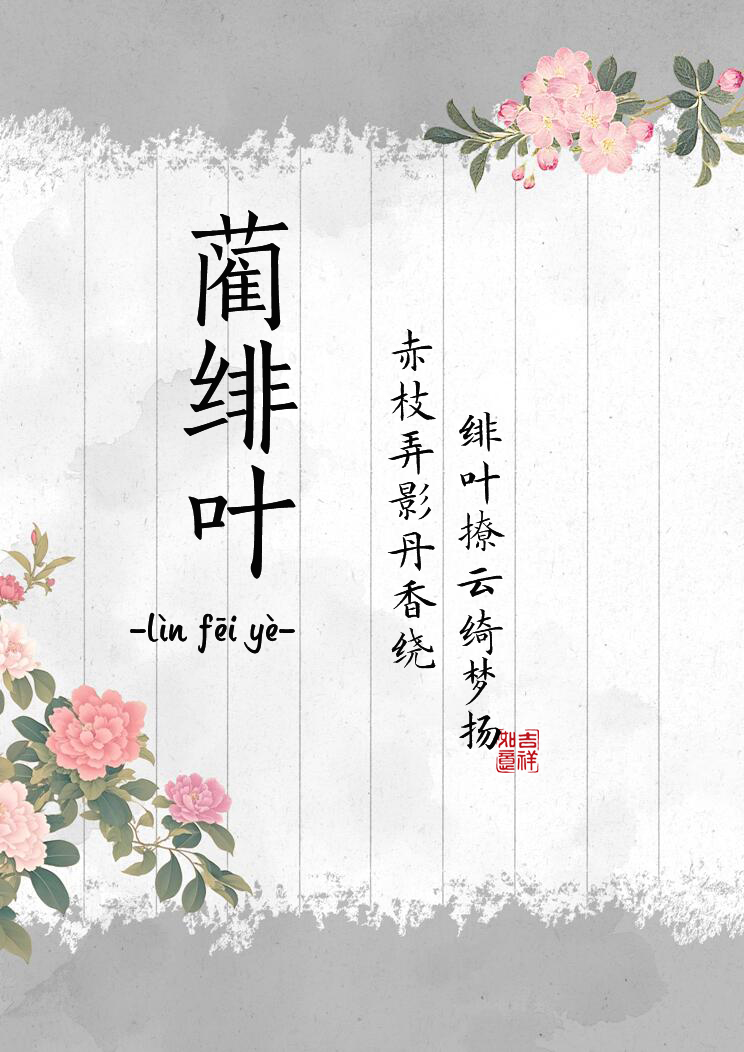 蔺绯叶
–lìn fēi yè–
赤枝弄影丹香绕
绯叶撩云绮梦扬
吉祥如意